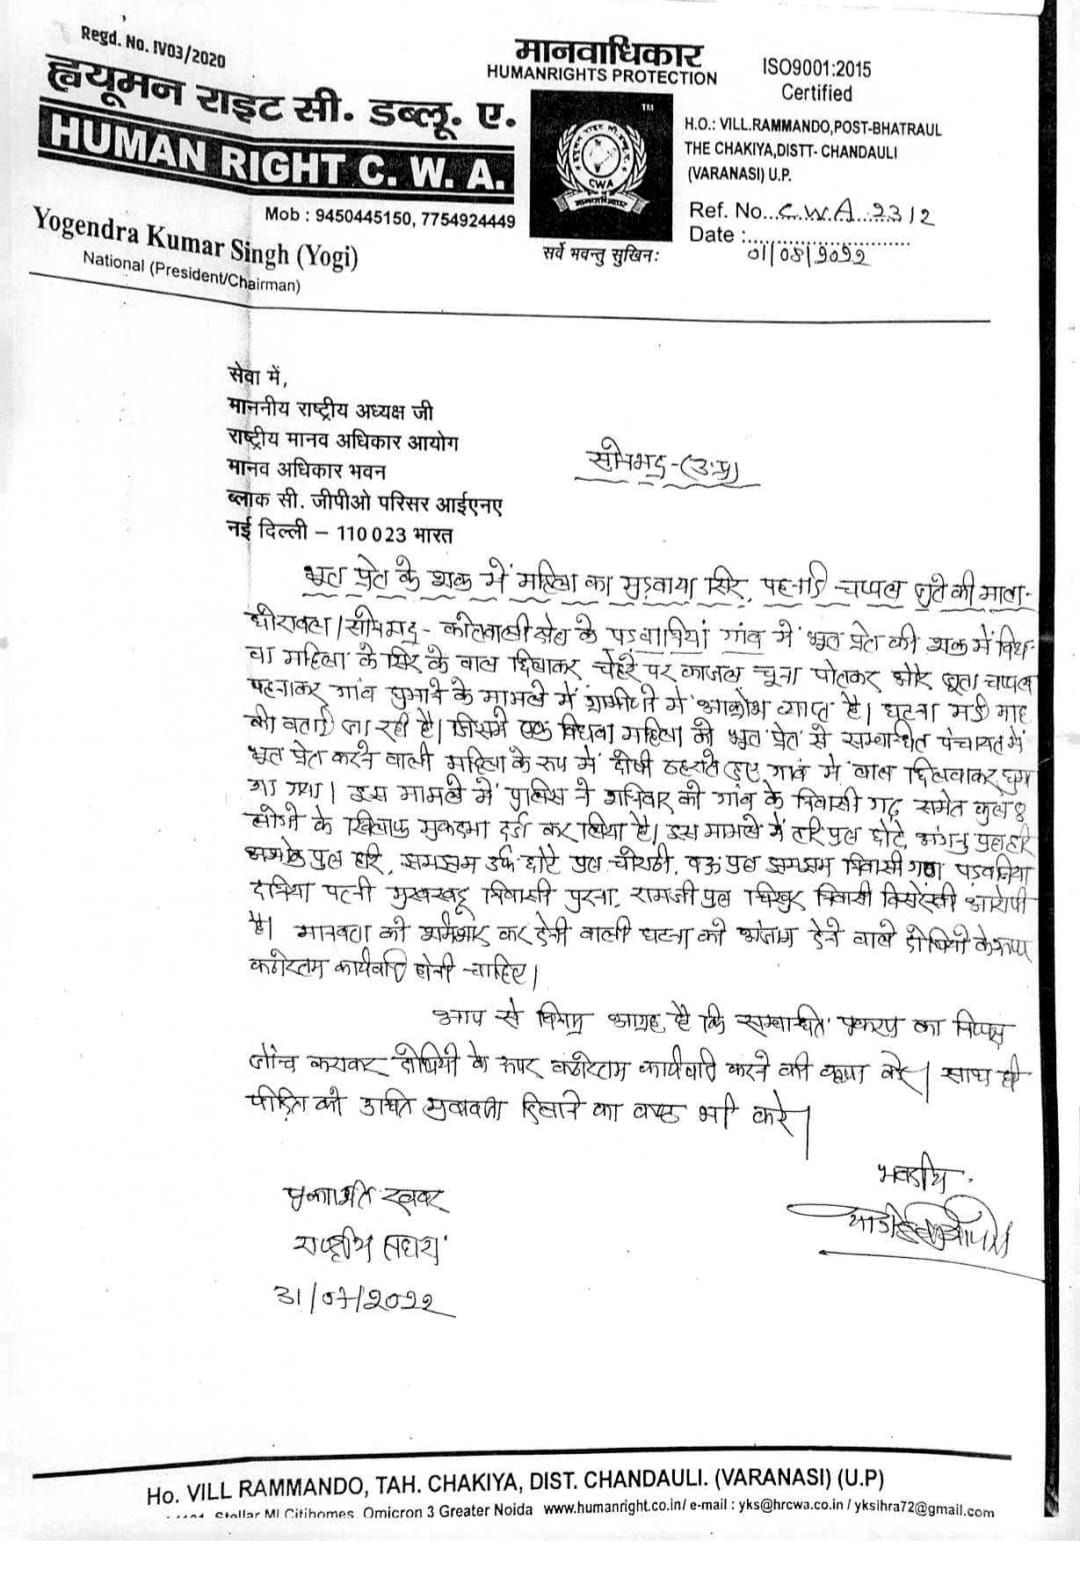 Regd. No. IV03/2020
ह्यूमन राइट सी. डब्लू. ए.
HUMAN RIGHT C. W. A.
Mob : 9450445150, 7754924449
Yogendra Kumar Singh (Yogi)
National (President/Chairman)
मानवाधिकार
HUMANRIGHTS PROTECTION
TM
CWA
सर्वे भवन्तु सुखिनः
ISO9001:2015
Certified
H.O.: VILL.RAMMANDO,POST-BHATRAUL
THE CHAKIYA,DISTT- CHANDAULI
(VARANASI) U.P.
Ref. No...C.W.A..2312
Date :..........................
01/08/2022
सेवा में,
माननीय राष्ट्रीय अध्यक्ष जी
राष्ट्रीय मानव अधिकार आयोग
मानव अधिकार भवन
ब्लाक सी. जीपीओ परिसर आईएनए
नई दिल्ली – 110023 भारत
सोनभद्र-(उ.प्र)
भूत प्रेत के शक में महिला का मुड़वाया सिर, पहनाई चप्पल जूते की माला-
घोरावल/सोनभद्र- कोतवाली क्षेत्र के गांव में भूत प्रेत की शक में विध-
वा महिला के सिर के बाल छिलाकर चेहरे पर काजल चूना पोतकर और जूता चप्पल
पहनाकर गांव घुमाने के मामले में ग्रामीणों में आक्रोश व्याप्त है। घटना मई माह
की बताई जा रही है। जिसमें एक विधवा महिला को भूत प्रेत से सम्बन्धित पंचायत में
भूत प्रेत करने वाली महिला के रूप में दोषी ठहराते हुए गांव में बाल छिलवाकर घुमा
या गया। इस मामले में पुलिस ने शनिवार को गांव के निवासी गढ़ समेत कुल 8
लोगो के खिलाफ मुकदमा दर्ज कर लिया है। इस मामले में हरि पुत्र छोटे,
पुत्र हरि, झमझम उर्फ छोटे पुत्र पुत्र झमझम निवासी गण
पत्नी निवासी रामजी पुत्र निवासी आरोपी
है। मानवता को शर्मसार कर देनी वाली घटना को अंजाम देने वाले दोषियो के ऊपर
कठोरतम कार्यवाही होनी चाहिए।
आप से विनम्र आग्रह है कि सम्बन्धित प्रकरण का निष्पक्ष
जाँच कराकर दोषियो के ऊपर कठोरतम कार्यवाही करने की कृपा करे। साथ ही
पीड़ित को उचित मुवावजा दिलाने का कष्ट भी करे।
भवदीय
राष्ट्रीय सदस्य
31/07/2022
Ho. VILL RAMMANDO, TAH. CHAKIYA, DIST. CHANDAULI. (VARANASI) (U.P)
Stellar MI Citihomes, Omicron 3 Greater Noida www.humanright.co.in/ e-mail : yks@hrcwa.co.in / yksihra72@gmail.com